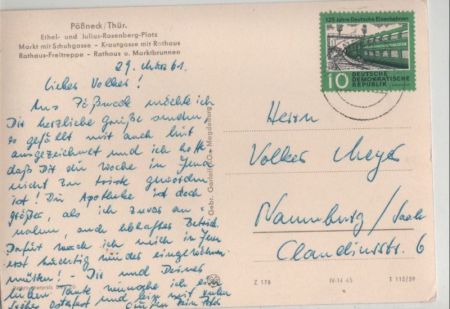 Pößneck/Thür.
Ethel- und Julius-Rosenberg-Platz
Markt mit Schuhgasse - Krautgasse mit Rathaus
Rathaus-Freitreppe - Rathaus u. Marktbrunnen
29. März 61.
Lieber Volker!
Aus Pößneck möchte ich
Dir herzliche Grüße senden
es gefällt mir auch hier
ausgezeichnet und ich hoffe
daß Dir die Woche in Jena
nicht zu trist geworden
ist! Die Apotheke ist doch
größer, als ich zuvor an-
nahm, auch lebhafter Betrieb.
Dafür muß ich mich in
erst tüchtig
müssen! - Dir und Deiner
lieben Tante wünsche ich ein
frohes Osterfest und bin mit vielen
Grüßen Dein
125 Jahre Deutsche Eisenbahnen
10
DEUTSCHE
DEMOKRATISCHE
REPUBLIK
Gebr. Garloff KG., Magdeburg
Herrn
Volker Meyer
Naumburg/Saale
Claudiusstr. 6
Z 178
IV-14-45